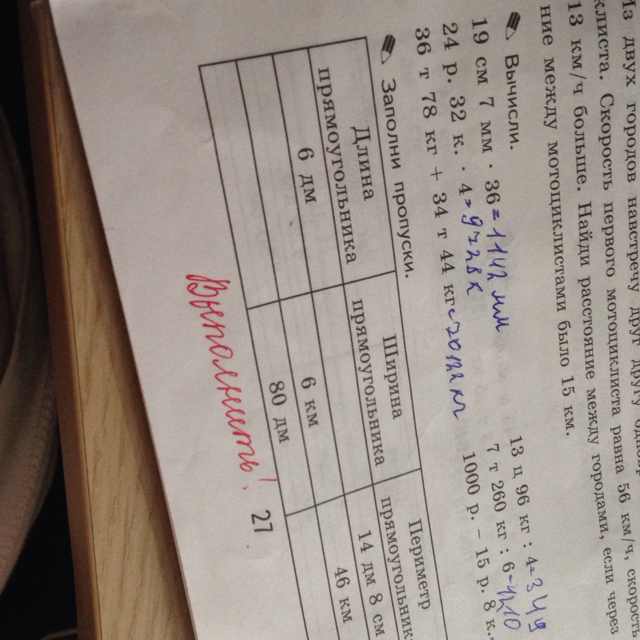 Из двух городов навстречу друг другу
клиста. Скорость первого мотоциклиста равна 56 км/ч,
13 км/ч больше. Найди расстояние между городами, если через
ние между мотоциклистами было 15 км.
Вычисли.
19 см 7 мм · 36 =
13 ц 96 кг : 4 = 349
24 р. 32 к. · 4 = 9728к
7 т 260 кг : 6 = 1210
36 т 78 кг + 34 т 44 кг
1000 р. – 15 р. 8 к.
Заполни пропуски.
Длина прямоугольника
Ширина прямоугольника
Периметр
6 дм
14 дм 8 см
6 км
46 км
80 дм
27
Выполнить!